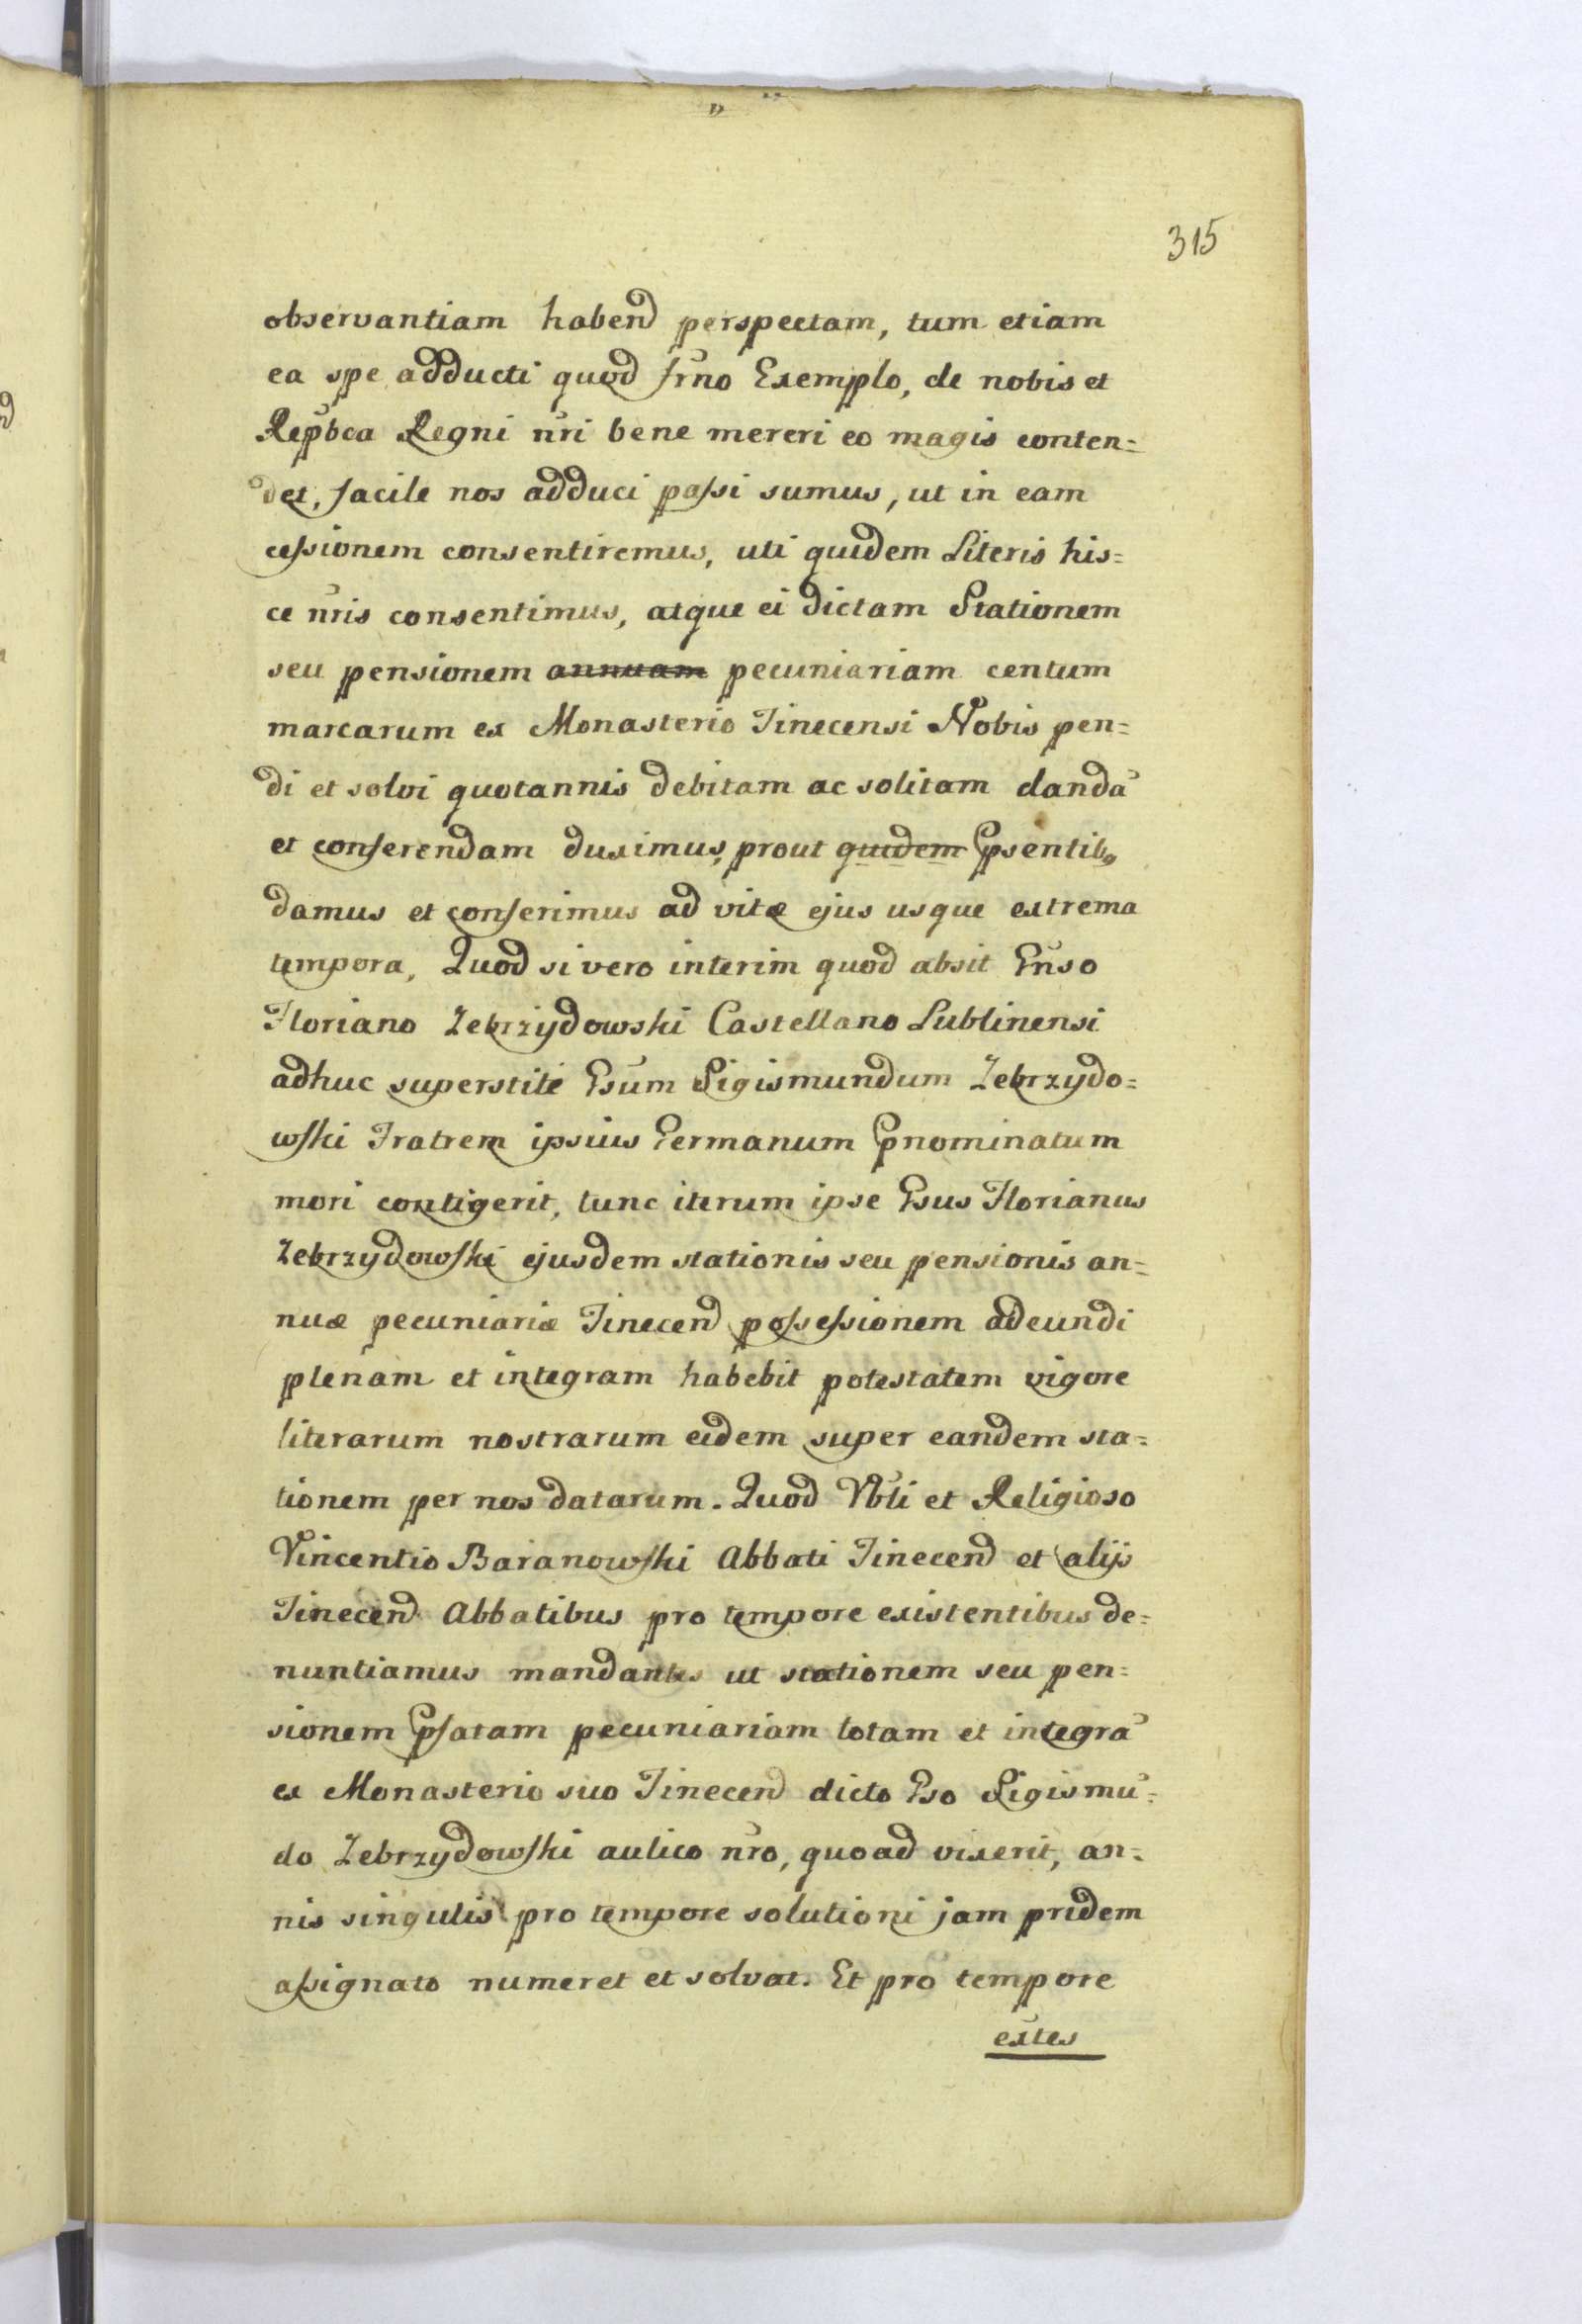 315
observantiam habend perspectam, tum etiam
ea spe adducti quod frno Exemplo, de nobis et
Repbca Regni nri bene mereri eo magis conten=
det, facile nos adduci passi sumus, ut in eam
cessionem consentiremus, uti quidem Literis his=
ce nris consentimus, atque ei dictam Stationem
seu pensionem annuam pecuniariam centum
marcarum ex Monasterio Tinecensi Nobis pen=
di et solvi quotannis debitam ac solitam dandā
et conferendam duximus, prout quidem psentib,
damus et conferimus ad vitæ ejus usque extrema
tempora, Quod si vero interim quod absit Gnso
Floriano Zebrzydowski Castellano Lublinensi
adhuc superstite Gsum Sigismundum Zebrzydo=
wski Fratrem ipsius Germanum pnominatum
mori contigerit, tunc iterum ipse Gsus Florianus
Zebrzydowski ejusdem stationis seu pensionis an=
nuæ pecuniariæ Tinecend possessionem adeundi
plenam et integram habebit potestatem vigore
literarum nostrarum eidem super eandem sta=
tionem per nos datarum. Quod Vbli et Religioso
Vincentio Baranowski Abbati Tinecend et alijs
Tinecend Abbatibus pro tempore existentibus de=
nuntiamus mandantes ut stationem seu pen=
sionem pfatam pecuniariam totam et integrā
ex Monasterio suo Tinecend dicto Gso Sigismū=
do Zebrzydowski aulico nro, quoad vixerit, an=
nis singulis pro tempore solutioni jam pridem
assignato numeret et solvat. Et pro tempore
extes